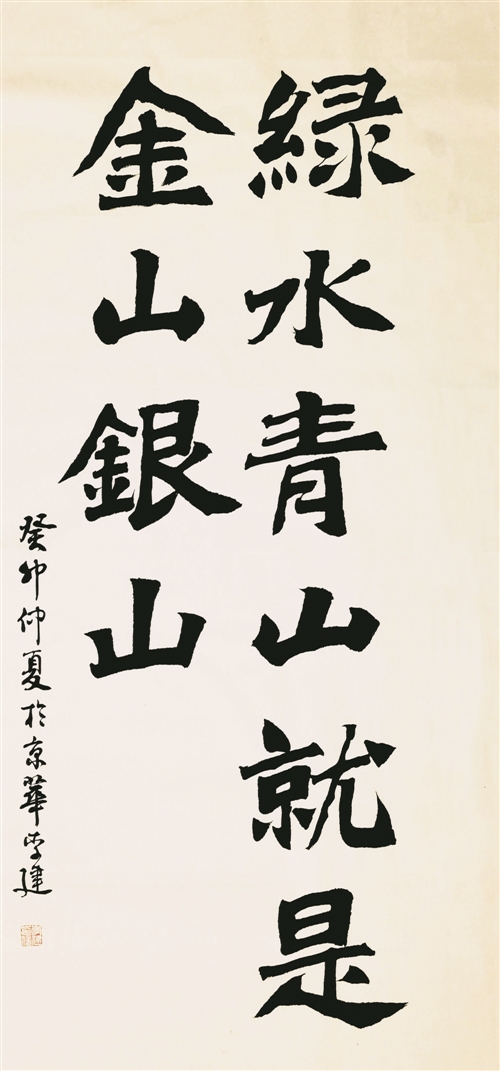 綠水青山就是
金山銀山
癸卯仲夏於京華李建